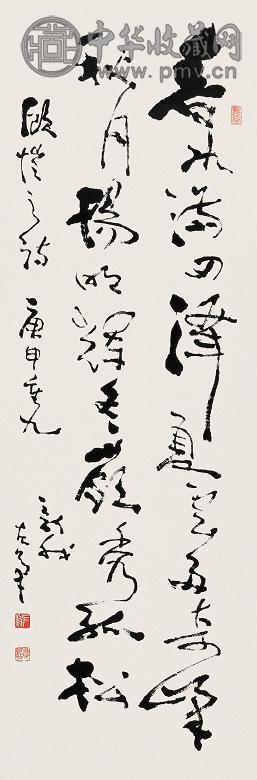 中华收藏网
www.pmv.cn
春水满四泽夏云多奇峰
秋月扬明辉冬岭秀孤松
顾恺之诗 庚申重九
新我左笔